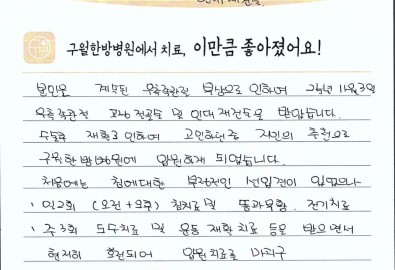 구월한방병원에서 치료, 이만큼 좋아졌어요!
본인은 계속된 우측족관절 부상으로 인하여 24년 11월 3일
우측족관절 고정술 및 인대 재건술을 받았습니다.
수술후 재활로 인하여 고민하던중 지인의 추천으로
구월한방병원에 입원하게 되었습니다.
처음에는 침에대한 부정적인 선입견이 있었으나
1일 2회 (오전 + 오후) 침치료 및 통과유황. 전기치료
주 3회 도수치료 및 운동 재활치료 등을 받으면서
현저히 호전되어 입원치료를 마치고